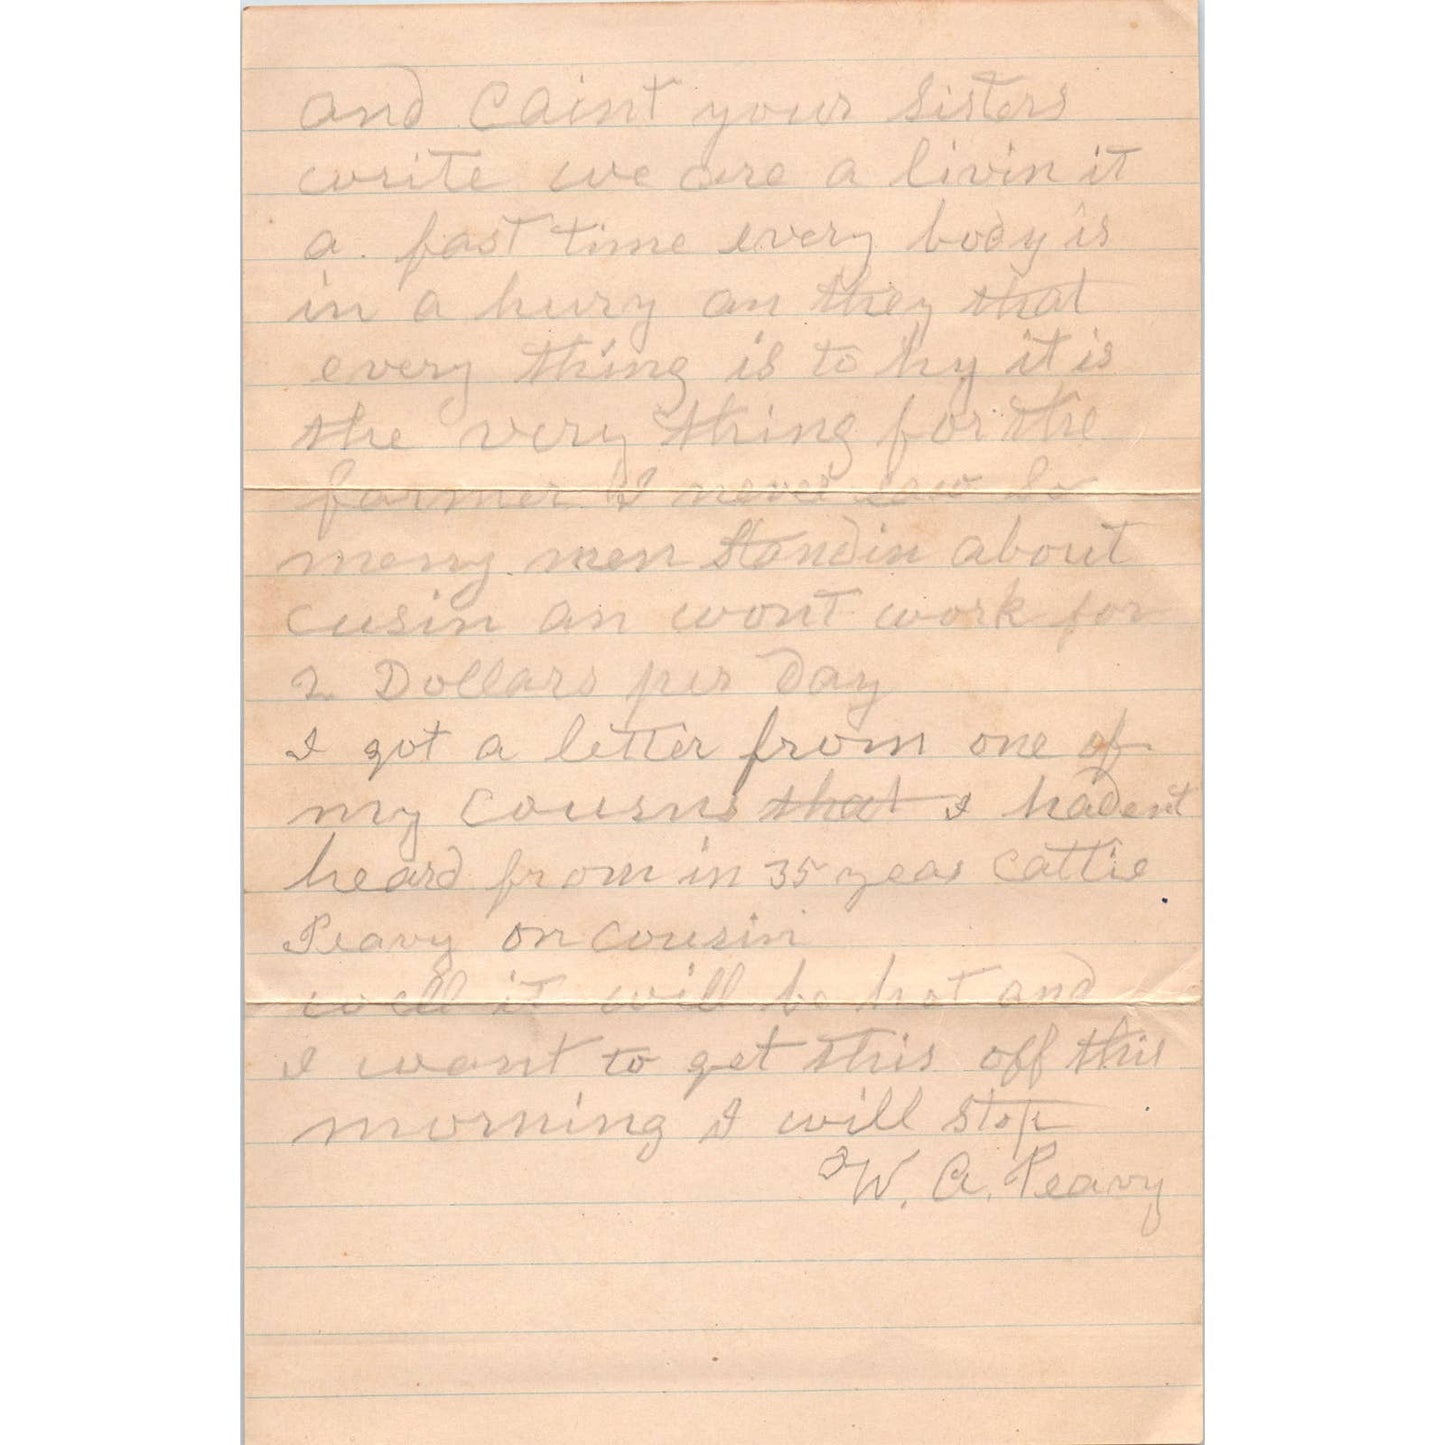 and Caint your sisters
write we are a livin it
a fast time every body is
in a hury an they that
every thing is to hy it is
the very thing for the
farmer I never saw So
meny men Standin about
cusin an wont work for
2 Dollars per day
I got a letter from one of
my Cousns that I hadent
heard from in 35 year Cattie
Peavy on cousin
well it will be hot and
I want to get this off this
morning I will Stop
W. A. Peavy